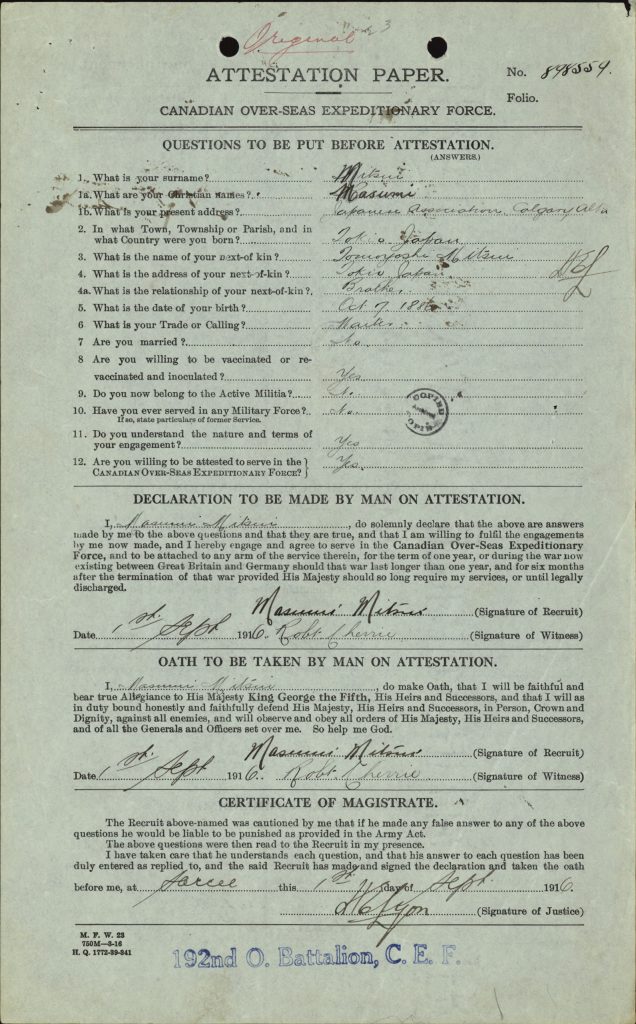 Original
ATTESTATION PAPER.
No. 898559.
Folio.
CANADIAN OVER-SEAS EXPEDITIONARY FORCE.
QUESTIONS TO BE PUT BEFORE ATTESTATION.
(ANSWERS.)
1. What is your surname? Mitsui
1a. What are your Christian names? Masumi
1b. What is your present address? Japanese Association Calgary Alta
2. In what Town, Township or Parish, and in
what Country were you born? Tokio Japan
3. What is the name of your next-of kin? Tomoyoshi Mitsui
4. What is the address of your next-of-kin? Tokio Japan
4a. What is the relationship of your next-of-kin? Brother
5. What is the date of your birth? Oct 7 1886
6. What is your Trade or Calling? Waiter
7. Are you married? No.
8 Are you willing to be vaccinated or re-
vaccinated and inoculated? Yes
9. Do you now belong to the Active Militia? No
10. Have you ever served in any Military Force? No.
If so, state particulars of former Service.
COPIED
11. Do you understand the nature and terms of
your engagement? Yes
12. Are you willing to be attested to serve in the
CANADIAN OVER-SEAS EXPEDITIONARY FORCE? Yes.
DECLARATION TO BE MADE BY MAN ON ATTESTATION.
I, Masumi Mitsui, do solemnly declare that the above are answers
made by me to the above questions and that they are true, and that I am willing to fulfil the engagements
by me now made, and I hereby engage and agree to serve in the Canadian Over-Seas Expeditionary
Force, and to be attached to any arm of the service therein, for the term of one year, or during the war now
existing between Great Britain and Germany should that war last longer than one year, and for six months
after the termination of that war provided His Majesty should so long require my services, or until legally
discharged.
Masumi Mitsui (Signature of Recruit)
Date 1st. Sept 1916. Robt Cherrie (Signature of Witness)
OATH TO BE TAKEN BY MAN ON ATTESTATION.
I, Masumi Mitsui, do make Oath, that I will be faithful and
bear true Allegiance to His Majesty King George the Fifth, His Heirs and Successors, and that I will as
in duty bound honestly and faithfully defend His Majesty, His Heirs and Successors, in Person, Crown and
Dignity, against all enemies, and will observe and obey all orders of His Majesty, His Heirs and Successors,
and of all the Generals and Officers set over me. So help me God.
Masumi Mitsui (Signature of Recruit)
Date 1st. Sept 1916. Robt Cherrie (Signature of Witness)
CERTIFICATE OF MAGISTRATE.
The Recruit above-named was cautioned by me that if he made any false answer to any of the above
questions he would be liable to be punished as provided in the Army Act.
The above questions were then read to the Recruit in my presence.
I have taken care that he understands each question, and that his answer to each question has been
duly entered as replied to, and the said Recruit has made and signed the declaration and taken the oath
before me, at Sarcee this 1st day of Sept. 1916
(Signature of Justice)
M. F. W. 23
750M—8-16
H. Q. 1772-39-841
192nd O. Battalion, C. E. F.